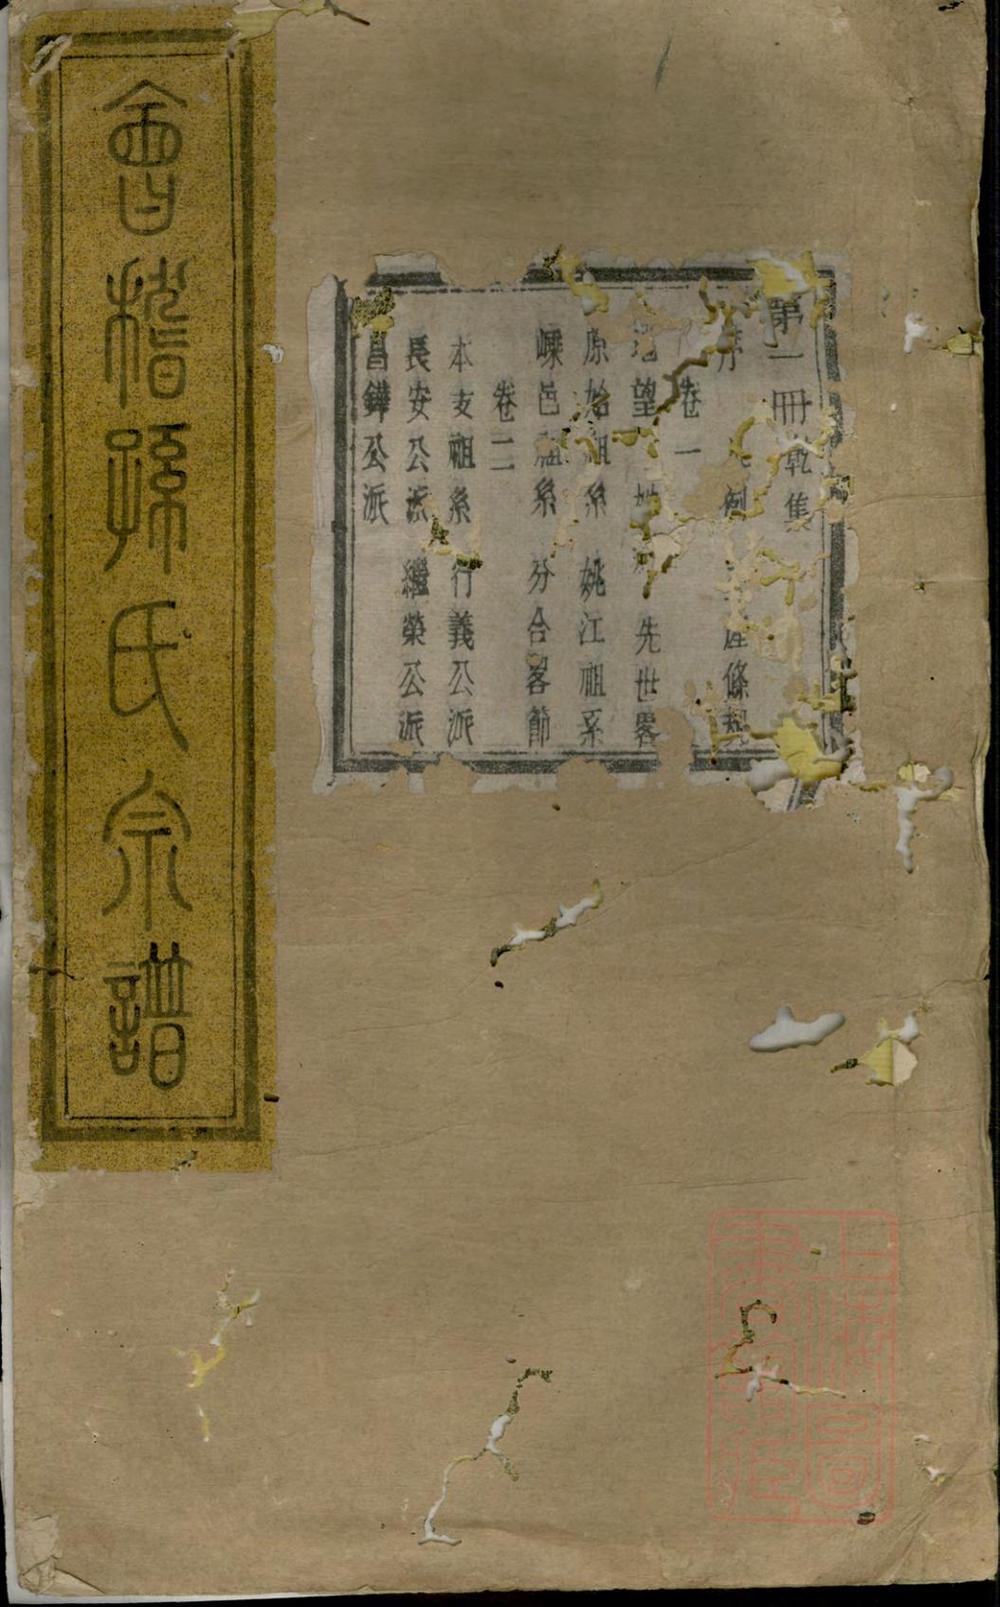 會稽孫氏宗譜
第一冊乾集
序 凡例 條規
卷一
望 先世畧
原始祖系 姚江祖系
嵊邑祖系 分合畧節
卷二
本支祖系 行義公派
長安公派 繼榮公派
昌鏵公派
上海圖書館藏